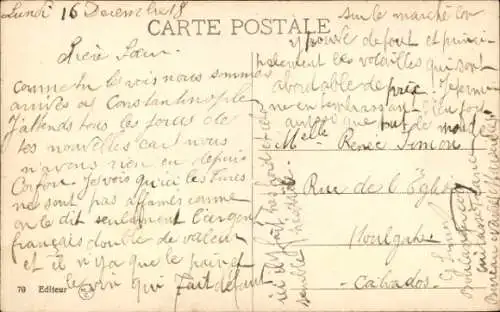 Lundi 16 Decembre 18
CARTE POSTALE
Chère Sœur.
Comme tu le vois nous sommes
arrivés a Constantinople
J'attends tous les jours de
tes nouvelles car nous
n'avons rien eu depuis
Corfou. Je vois qu'ici les Turcs
ne sont pas affamés comme
on le dit seulement l'argent
français double de valeur
et il n'y a que le pain et
le vin qui fait defaut
sur le marché on
y trouve de tout et princi-
palement les volailles qui sont
abordable de prix. Je termi-
ne en t'embrassant bien fort
ainsi que tout le monde
Melle Renée Simon
Rue de l'Eglise
Houlgate
Calvados
ici il fait
semble
G Simon
70 Editeur